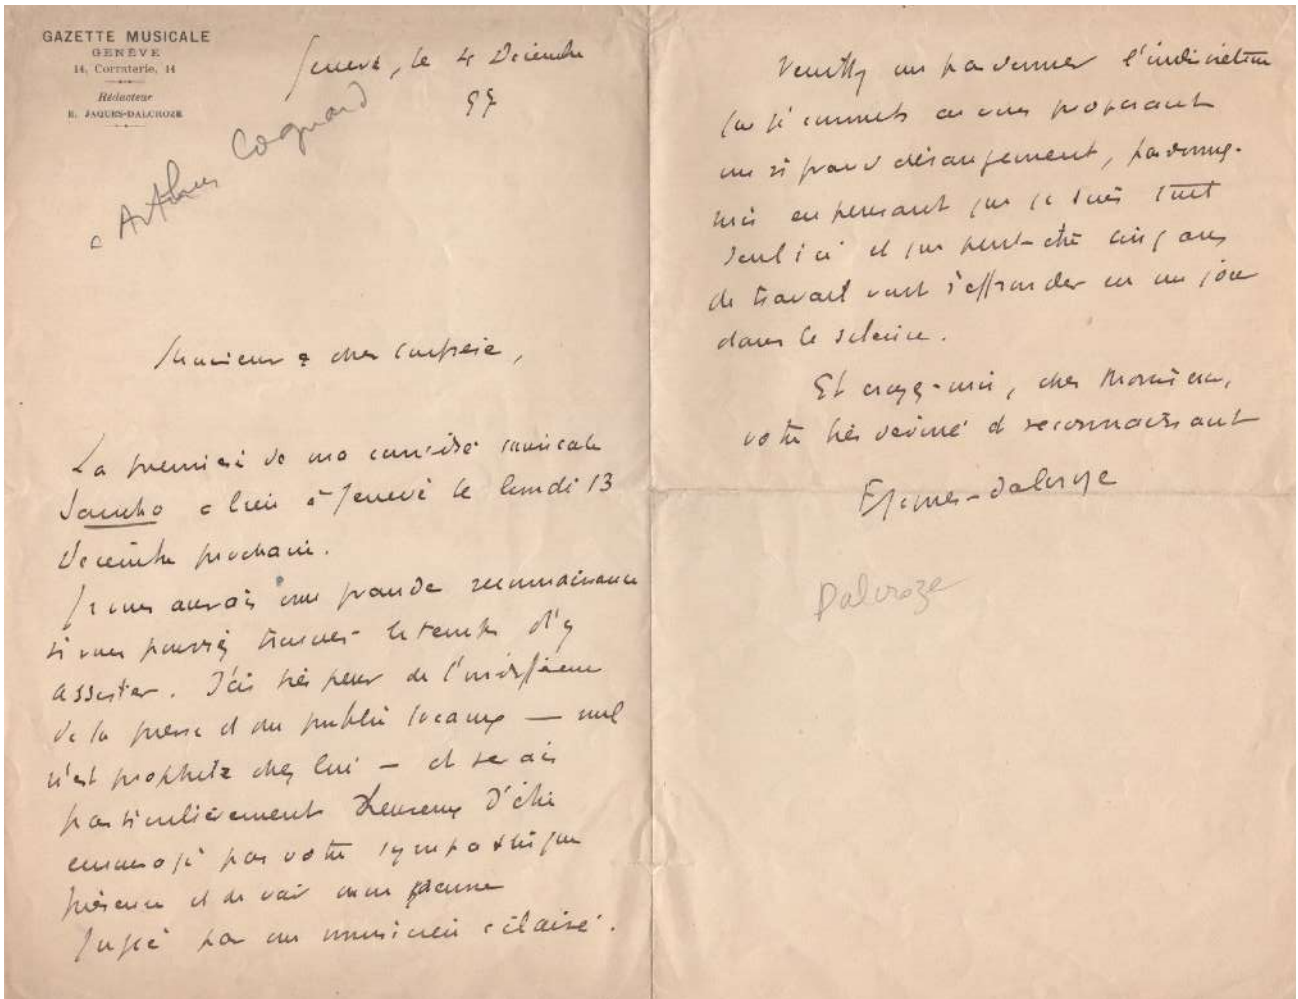 GAZETTE MUSICALE
GENÈVE
14, Corraterie, 14
Rédacteur
E. JAQUES-DALCROZE
Genève, le 4 Décembre
97
à Arthur Coquard
Monsieur & cher confrère,
La première de ma comédie musicale
Sancho a lieu à Genève le lundi 13
Décembre prochain.
Je vous aurais une grande reconnaissance
si vous pouviez trouver le temps d'y
assister. J'ai très peur de l'indifférence
de la presse et du public locaux — nul
n'est prophète chez lui — et serais
particulièrement heureux d'être
encouragé par votre sympathique
présence et de voir mon œuvre
jugée par un musicien éclairé.
Veuillez me pardonner l'indiscrétion
que je commets en vous proposant
un si grand dérangement, pardonnez-
moi en pensant que je suis tout
seul ici et que peut-être cinq ans
de travail vont s'effondrer en un jour
dans le silence.
Et croyez-moi, cher Monsieur,
votre très dévoué et reconnaissant
E Jaques-Dalcroze
Dalcroze